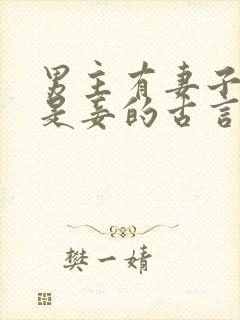 男主有妻子
是妾的古言
樊一婧